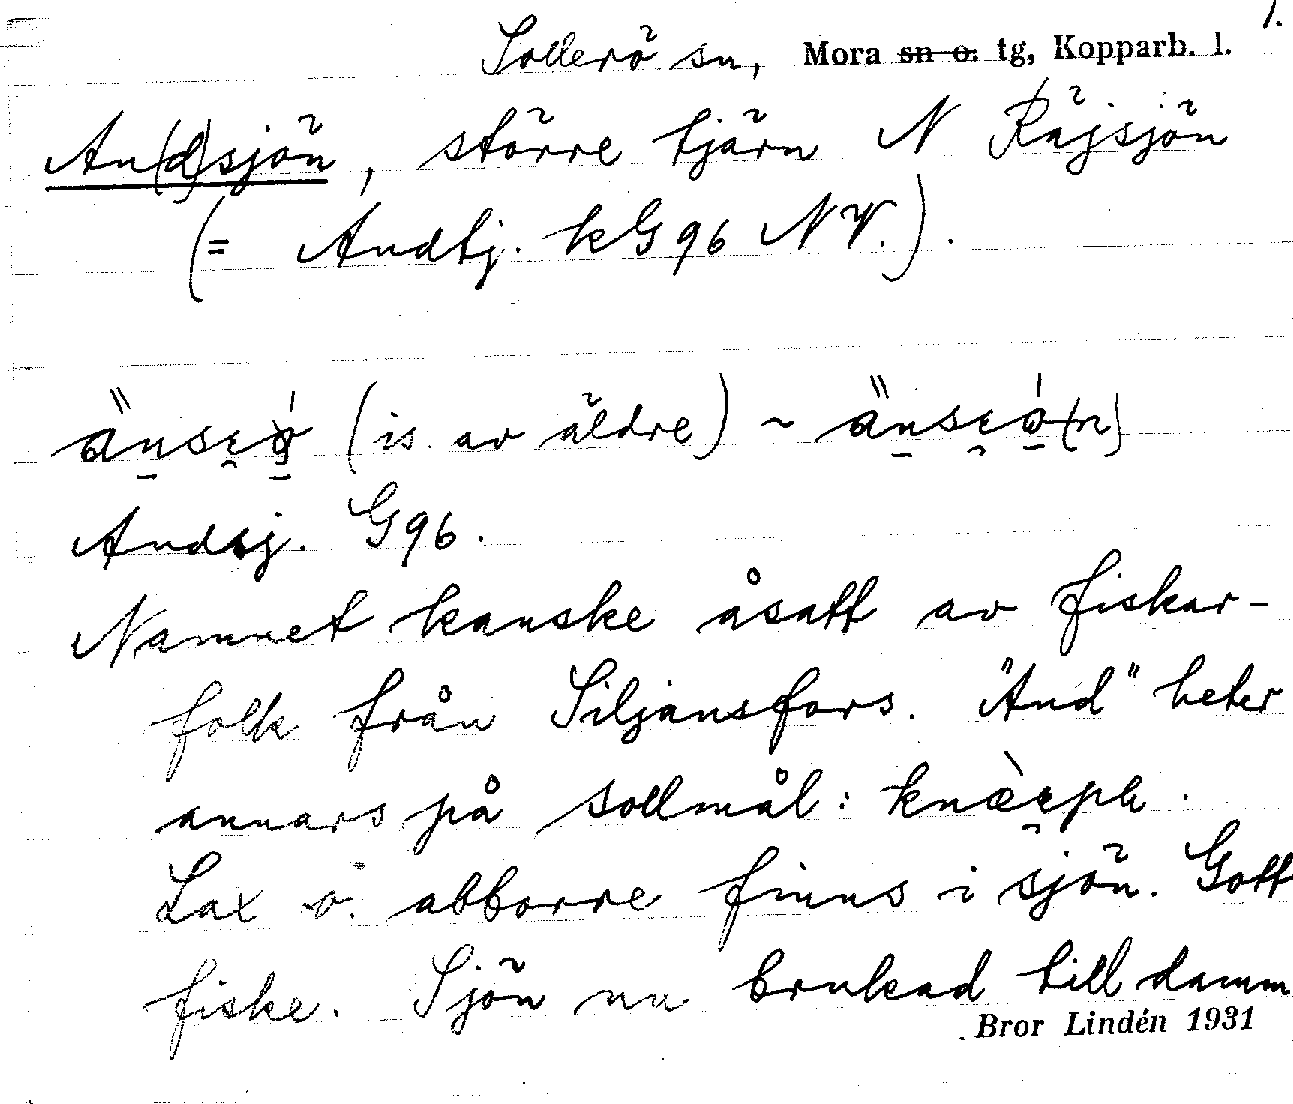 1.
Sollerö sn, Mora sn o. tg, Kopparb. l.
An(d)sjön, större tjärn N Räjsjön
(= Andtj. kG96 NV.).
(is. av äldre) ~
Andsj. G96.
Namnet kanske åsatt av fiskar-
folk från Siljansfors. "And" heter
annars på sollmål:
Lax o. abborre finns i sjön. Gott
fiske. Sjön nu brukad till damm
Bror Lindén 1931